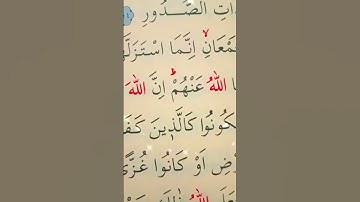 ذَاتِ الصُّدُورِ
جَمْعَانِۙ اِنَّمَا اسْتَزَلَّ
اللّٰهُ عَنْهُمْۜ اِنَّ اللّٰهَ
كُونُوا كَالَّذ۪ينَ كَفَ
ضِ اَوْ كَانُوا غُزًّى
اللّٰهُ ذٰلِكَ